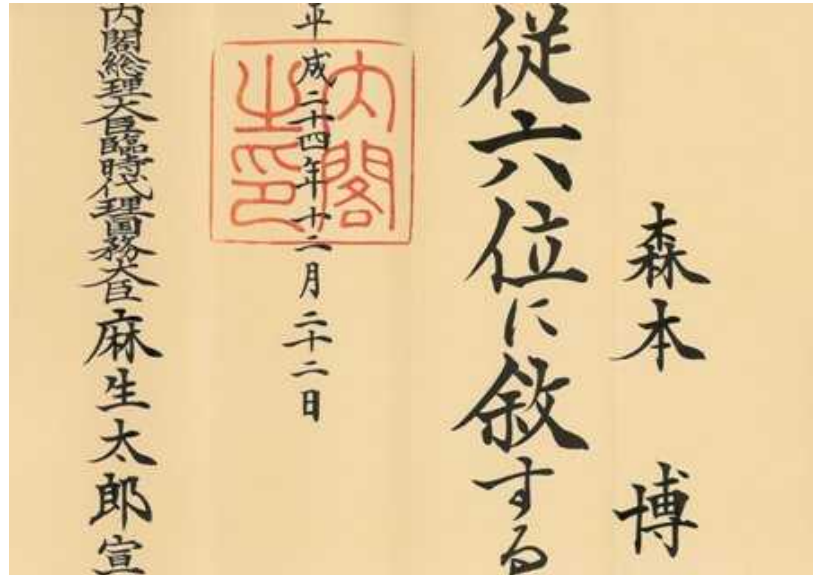 森本 博
従六位に敘する
平成二十四年十二月二十二日
内閣之印
内閣総理大臣臨時代理国務大臣 麻生太郎 宣